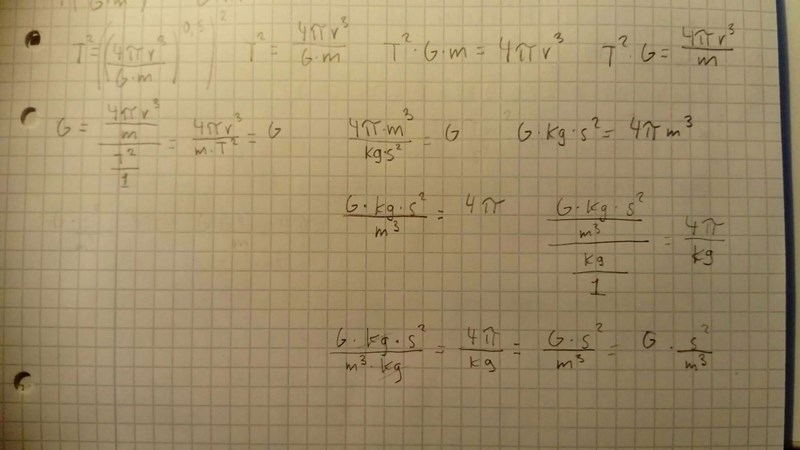 T² = ((4πr³/G·m)^0,5)²   T² = 4πr³/G·m   T²·G·m = 4πr³   T²·G = 4πr³/m
G = (4πr³/m)/(T²/1) = 4πr³/m·T² = G   4π·m³/kg·s² = G   G·kg·s² = 4πm³
G·kg·s²/m³ = 4π   (G·kg·s²/m³)/(kg/1) = 4π/kg
G·kg·s²/m³·kg = 4π/kg = G·s²/m³ = G·s²/m³